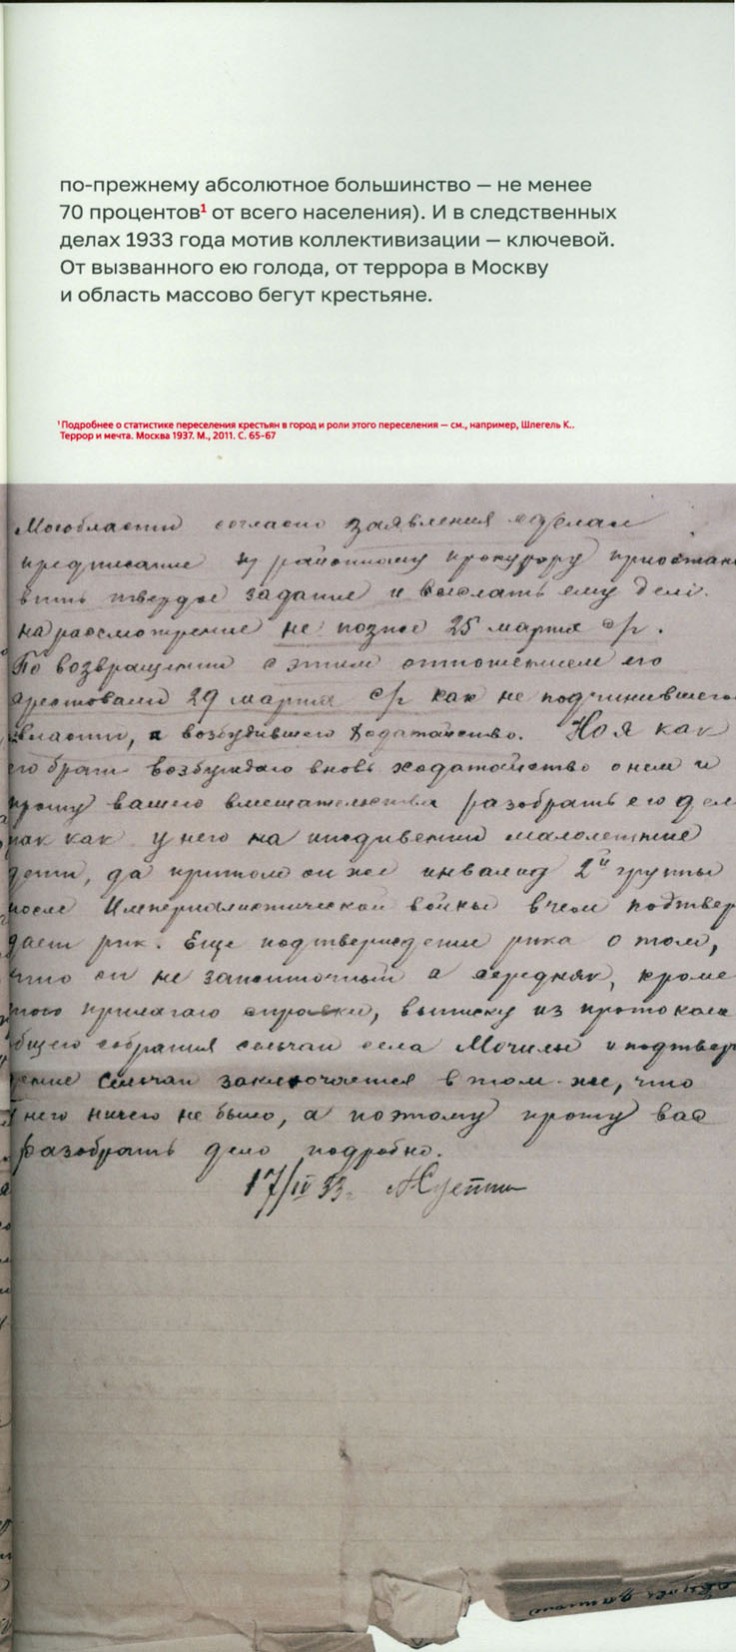 по-прежнему абсолютное большинство — не менее
70 процентов¹ от всего населения). И в следственных
делах 1933 года мотив коллективизации — ключевой.
От вызванного ею голода, от террора в Москву
и область массово бегут крестьяне.
¹Подробнее о статистике переселения крестьян в город и роли этого переселения — см., например, Шлегель К..
Террор и мечта. Москва 1937. М., 2011. С. 65–67
Мособласти согласно заявления сделал
предписание районному прокурору приостано
вить твердое задание и выслать ему дело
на рассмотрение не позное 25 марта с/г.
По возвращении с этим отношением его
арестовали 29 марта с/г как не подчинившего
власти, а возбудившего ходатайство. Но я как
его брат возбуждаю вновь ходатайство о нем и
прошу вашего вмешательства разобрать его дел
так как у него на иждивении малолетние
дети, да притом он же инвалид 2й группы
после Империалистической войны в чем подтвер
дает рик. Еще подтверждение рика о том,
что он не зажиточный а середняк, кроме
того прилагаю справки, выписку из протокола
общего собрания сельчан села Мочилы и подтвер
дение сельчан заключается в том же, что
у него ничего не было, а поэтому прошу вас
разобрать дело подробно.
17/IV 33.